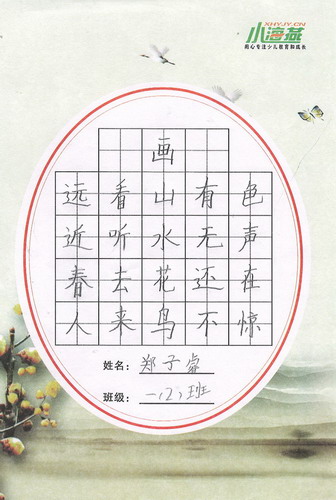 XHYJY.CN
小海燕
用心专注少儿教育和成长
画
远看山有色
近听水无声
春去花还在
人来鸟不惊
姓名：郑子睿
班级：一（2）班